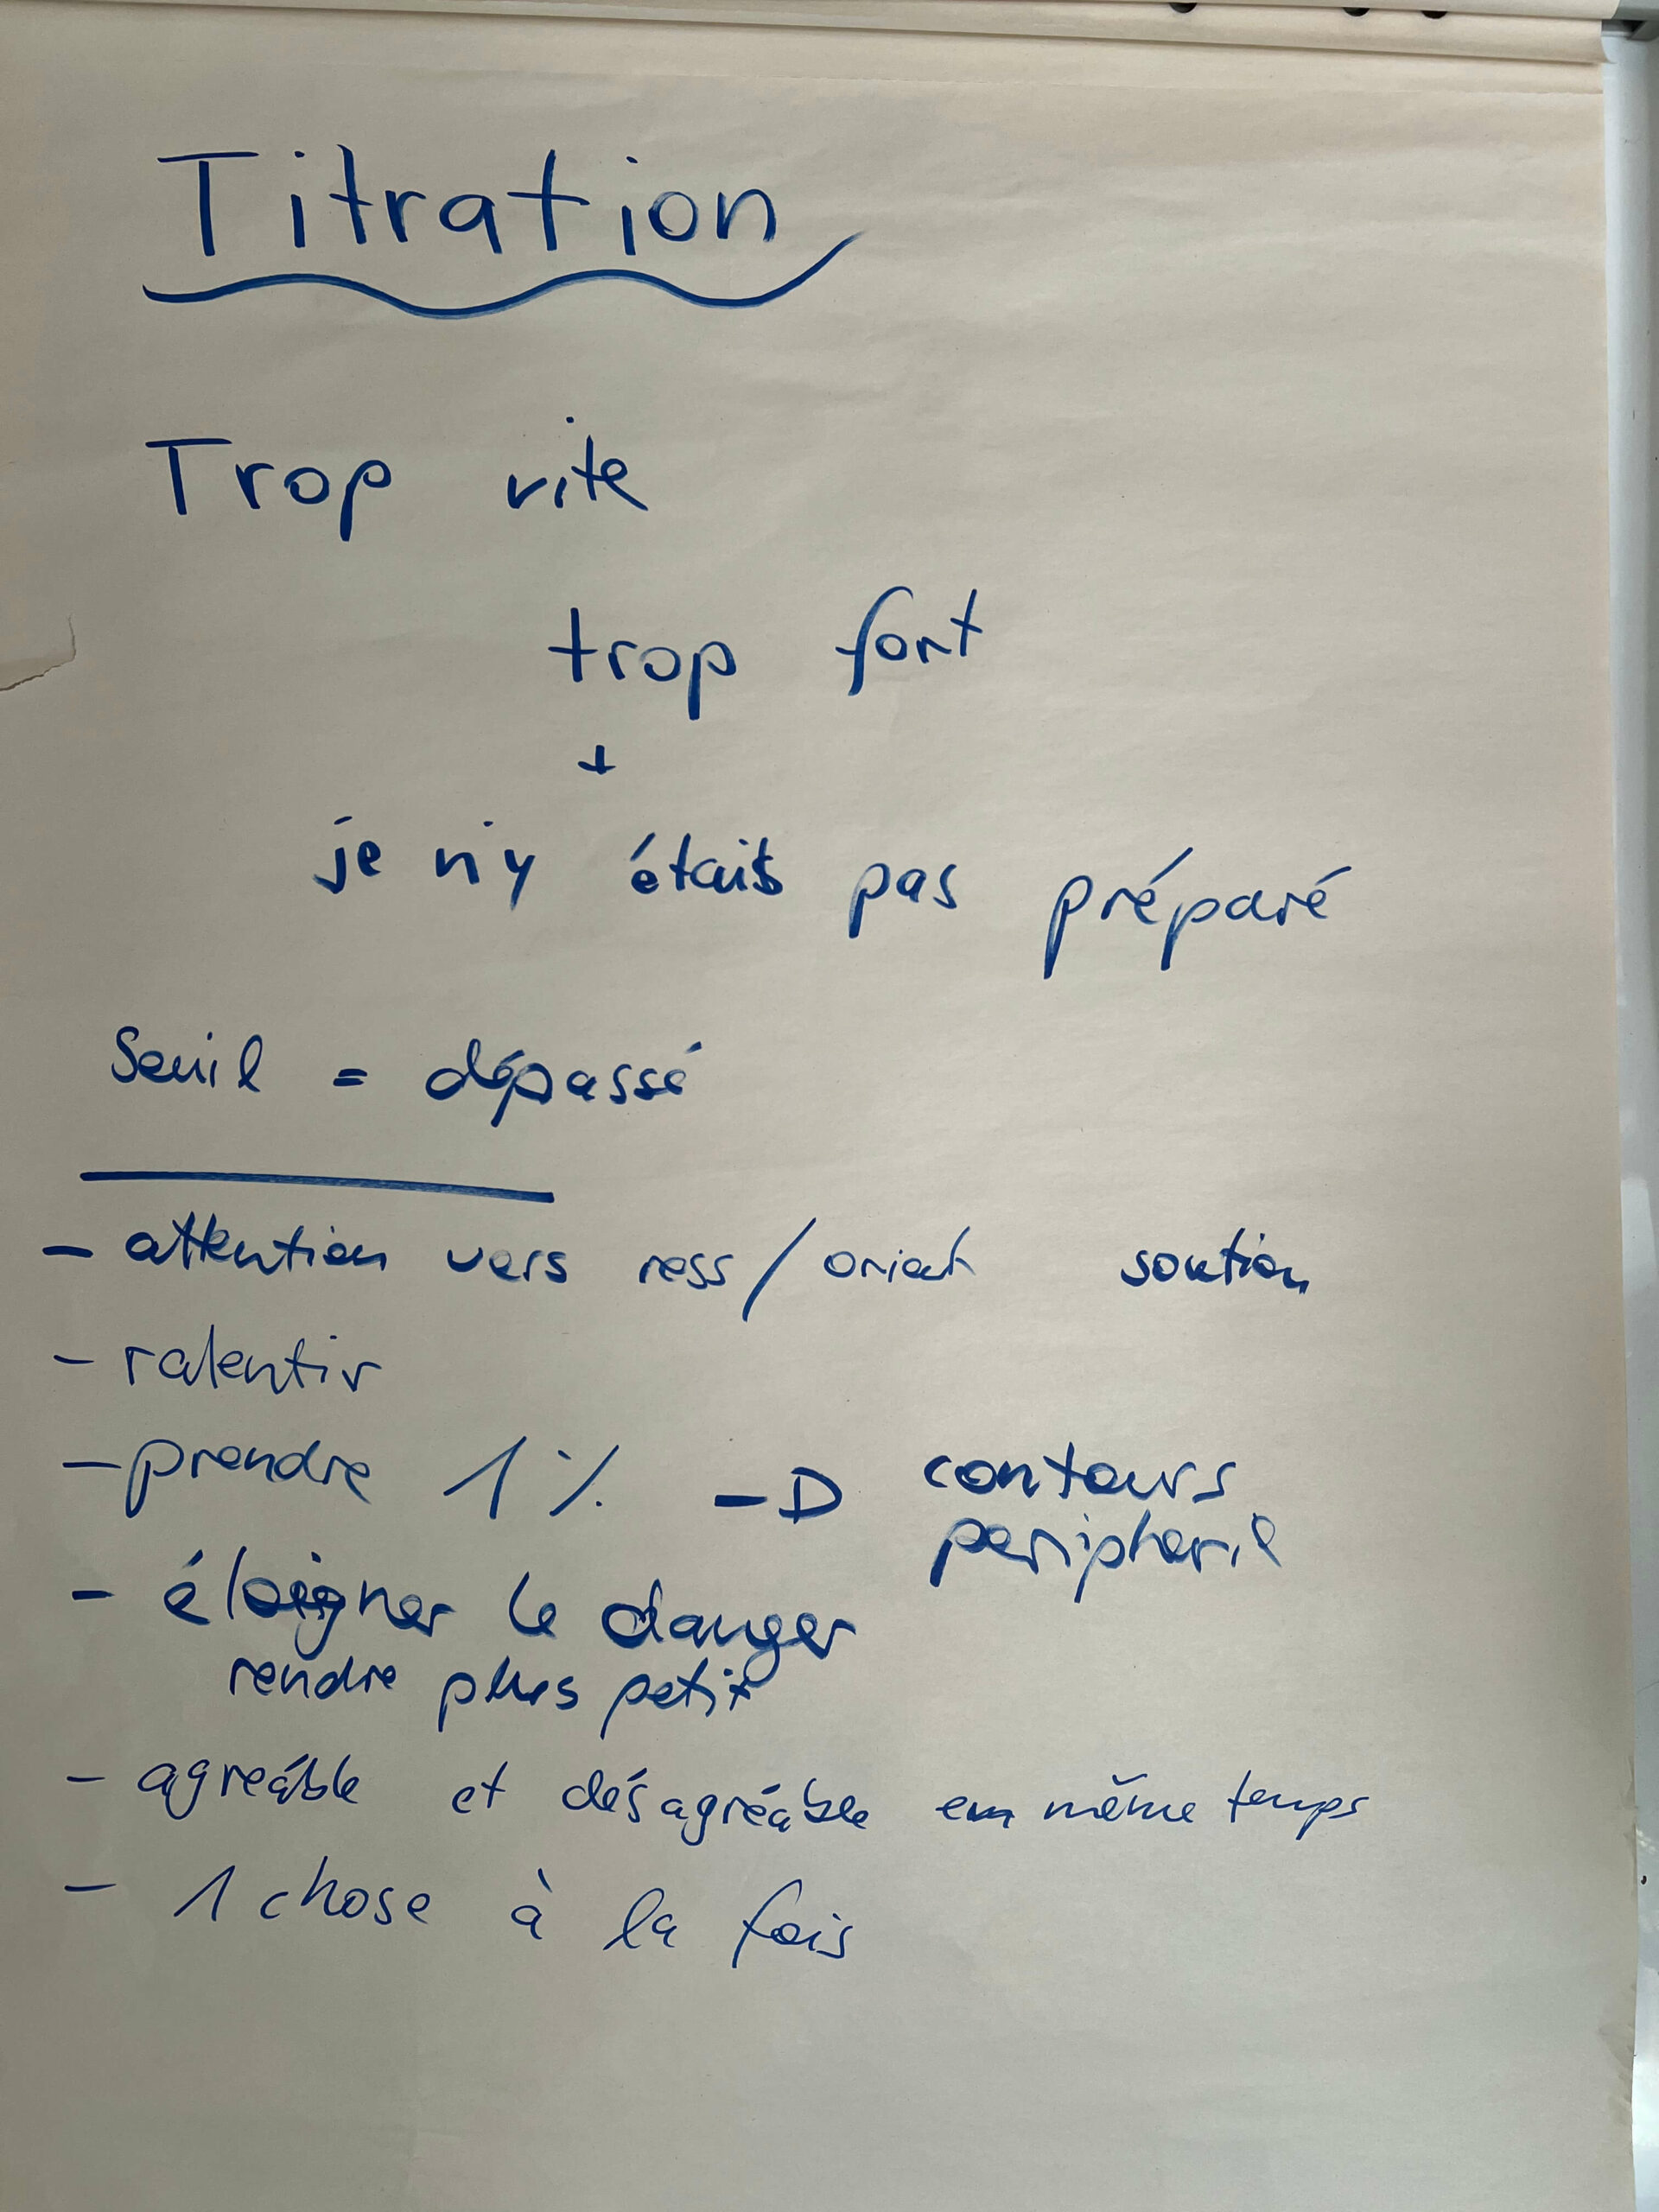 Titration
Trop vite
trop fort
+
je n'y étais pas préparé
Seuil = dépassé
- attention vers ress/orient soutien
- ralentir
- prendre 1% -D contours
peripherie
- éloigner le danger
rendre plus petit
- agréable et désagréable en même temps
- 1 chose à la fois